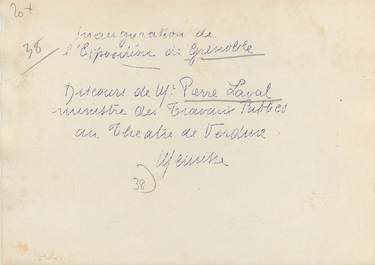 20+
Inauguration de
38
l'Exposition de Grenoble
Discours de Mr Pierre Laval
ministre des Travaux Publics
au Theatre de Verdure
Meurisse
38